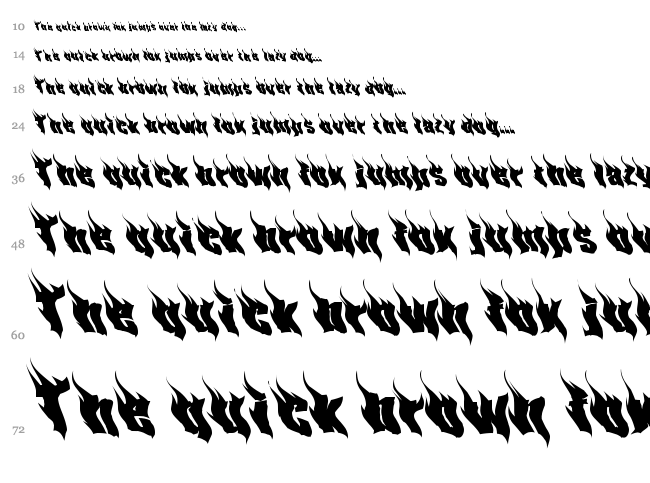 10 The quick brown fox jumps over the lazy dog...
14 The quick brown fox jumps over the lazy dog...
18 The quick brown fox jumps over the lazy dog...
24 The quick brown fox jumps over the lazy dog...
36 The quick brown fox jumps over the lazy
48 The quick brown fox jumps ov
60 The quick brown fox ju
72 The quick brown fox